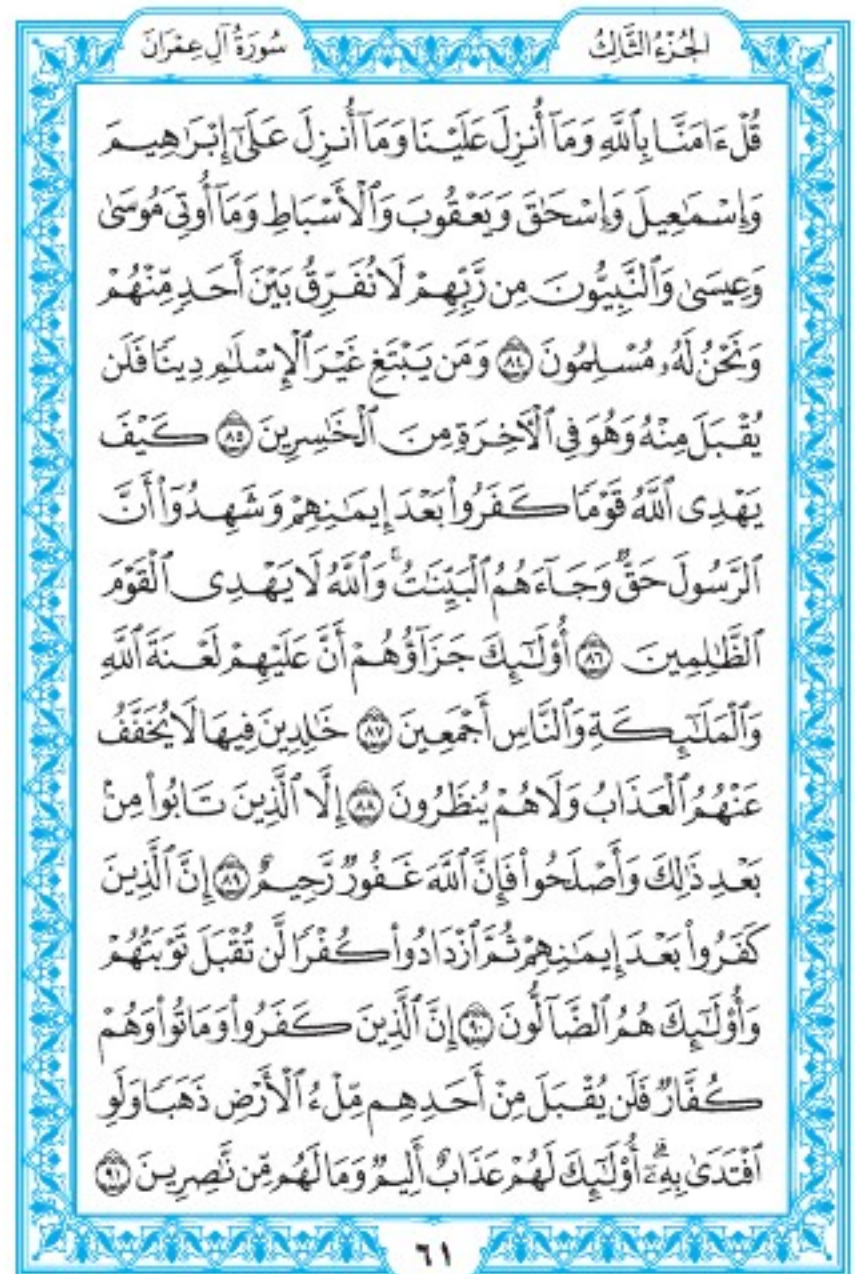 الجُزْءُ الثَّالِثُ
سُورَةُ آلِ عِمْرَانَ
قُلْ ءَامَنَّا بِٱللَّهِ وَمَآ أُنزِلَ عَلَيْنَا وَمَآ أُنزِلَ عَلَىٰٓ إِبْرَٰهِيمَ
وَإِسْمَٰعِيلَ وَإِسْحَٰقَ وَيَعْقُوبَ وَٱلْأَسْبَاطِ وَمَآ أُوتِىَ مُوسَىٰ
وَعِيسَىٰ وَٱلنَّبِيُّونَ مِن رَّبِّهِمْ لَا نُفَرِّقُ بَيْنَ أَحَدٍ مِّنْهُمْ
وَنَحْنُ لَهُۥ مُسْلِمُونَ ٨٤ وَمَن يَبْتَغِ غَيْرَ ٱلْإِسْلَٰمِ دِينًا فَلَن
يُقْبَلَ مِنْهُ وَهُوَ فِى ٱلْأَخِرَةِ مِنَ ٱلْخَٰسِرِينَ ٨٥ كَيْفَ
يَهْدِى ٱللَّهُ قَوْمًا كَفَرُوا۟ بَعْدَ إِيمَٰنِهِمْ وَشَهِدُوٓا۟ أَنَّ
ٱلرَّسُولَ حَقٌّ وَجَآءَهُمُ ٱلْبَيِّنَٰتُ ۚ وَٱللَّهُ لَا يَهْدِى ٱلْقَوْمَ
ٱلظَّٰلِمِينَ ٨٦ أُو۟لَٰٓئِكَ جَزَآؤُهُمْ أَنَّ عَلَيْهِمْ لَعْنَةَ ٱللَّهِ
وَٱلْمَلَٰٓئِكَةِ وَٱلنَّاسِ أَجْمَعِينَ ٨٧ خَٰلِدِينَ فِيهَا لَا يُخَفَّفُ
عَنْهُمُ ٱلْعَذَابُ وَلَا هُمْ يُنظَرُونَ ٨٨ إِلَّا ٱلَّذِينَ تَابُوا۟ مِنۢ
بَعْدِ ذَٰلِكَ وَأَصْلَحُوا۟ فَإِنَّ ٱللَّهَ غَفُورٌ رَّحِيمٌ ٨٩ إِنَّ ٱلَّذِينَ
كَفَرُوا۟ بَعْدَ إِيمَٰنِهِمْ ثُمَّ ٱزْدَادُوا۟ كُفْرًا لَّن تُقْبَلَ تَوْبَتُهُمْ
وَأُو۟لَٰٓئِكَ هُمُ ٱلضَّآلُّونَ ٩٠ إِنَّ ٱلَّذِينَ كَفَرُوا۟ وَمَاتُوا۟ وَهُمْ
كُفَّارٌ فَلَن يُقْبَلَ مِنْ أَحَدِهِم مِّلْءُ ٱلْأَرْضِ ذَهَبًا وَلَوِ
ٱفْتَدَىٰ بِهِۦٓ ۗ أُو۟لَٰٓئِكَ لَهُمْ عَذَابٌ أَلِيمٌ وَمَا لَهُم مِّن نَّٰصِرِينَ ٩١
٦١